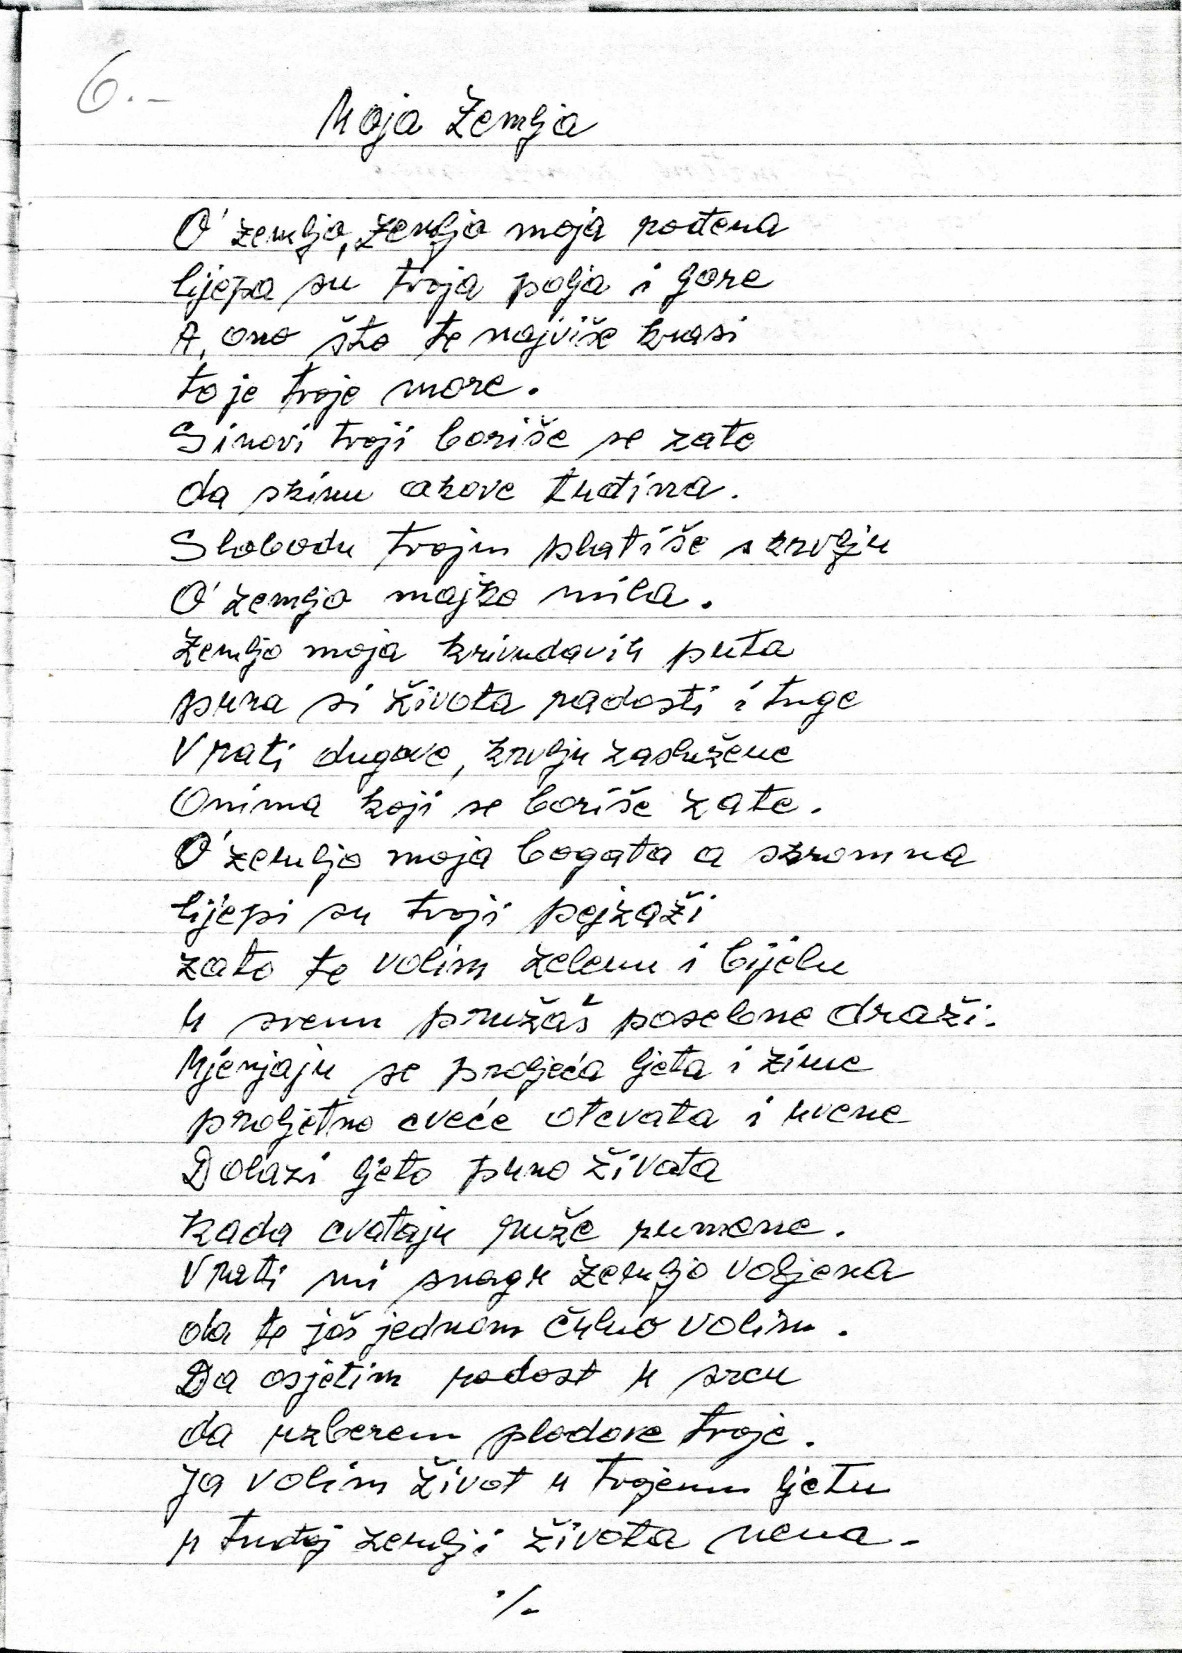 6.-
Moja Zemlja
O' zemljo, zemljo moja rođena
lijepa su tvoja polja i gore
A, ono što te najviše krasi
to je tvoje more.
Sinovi tvoji boriše se zato
da skinu okove tuđina.
Slobodu tvoju platiše s krvlju
O' zemljo majko mila.
Zemljo moja krivudavih puta
puna si života radosti i tuge
Vrati dugove, krvlju zaslužene
Onima koji se boriše zate.
O' zemljo moja bogata a skromna
lijepi su tvoji pejzaži
zato te volim zelenu i bijelu
u svemu pružaš posebne draži.
Mjenjaju se proljeća ljeta i zime
proljetno cveće otcvata i uvene
Dolazi ljeto puno živata
kada cvataju ruže rumene.
Vrati mi snagu zemljo voljena
da te još jednom čulno volim.
Da osjetim radost u srcu
da uzberem plodove tvoje.
Ja volim život u tvojemu ljetu
u tuđoj zemlji života nema.
./-